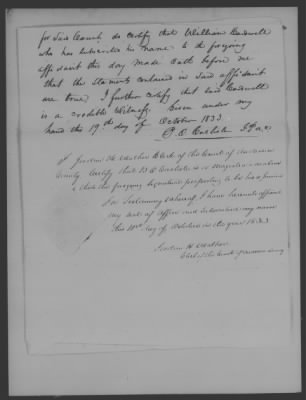 for said County do certify that William Caldwell
who has subscribed his name to the foregoing
affidavit this day made Oath before me
that the statements contained in said affidavit
are true. I further certify that said Caldwell
is a credible Witness Given under my
hand this 19th day of October 1833
I Jordan H. Clerk of the Court of
County Certify that is a magistrate
that the foregoing signature purporting to be his is genuine
In Testimony whereof I have hereunto affixed
my seal of office and subscribed my name
this day of October in the year 1833
Jordan H.
Clerk of the Court of County